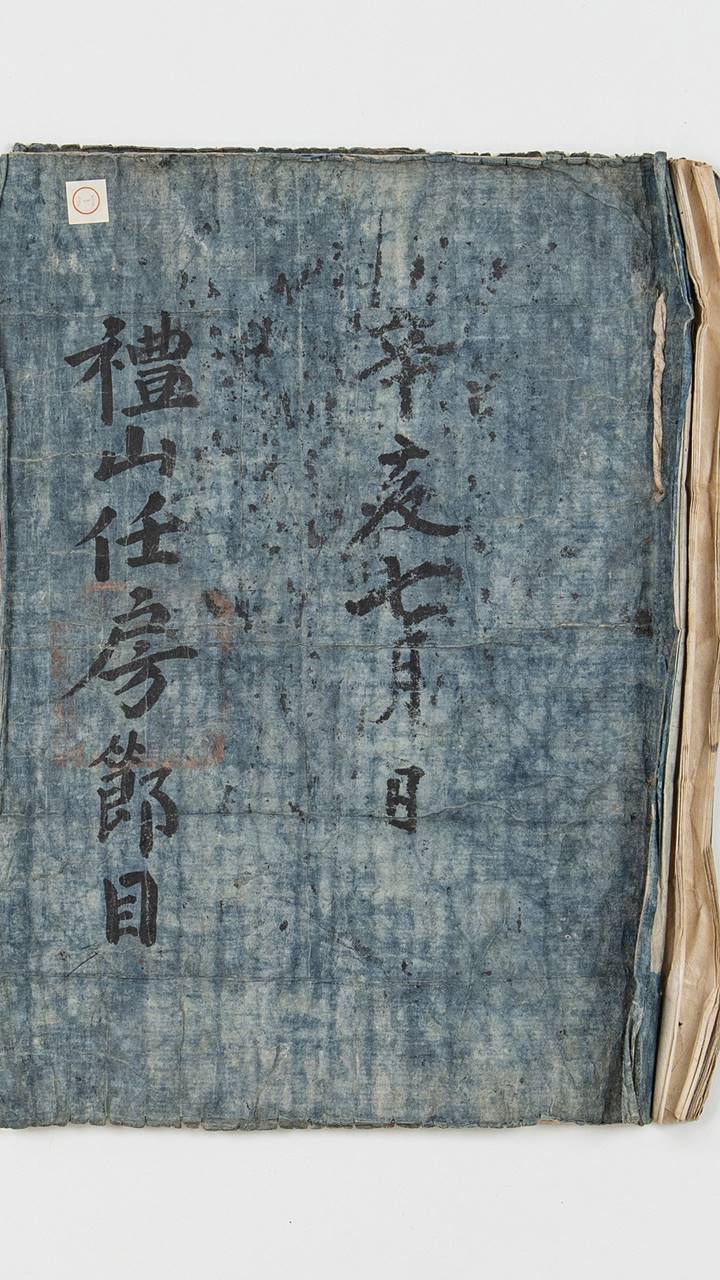 辛亥七月 日
禮山任房節目